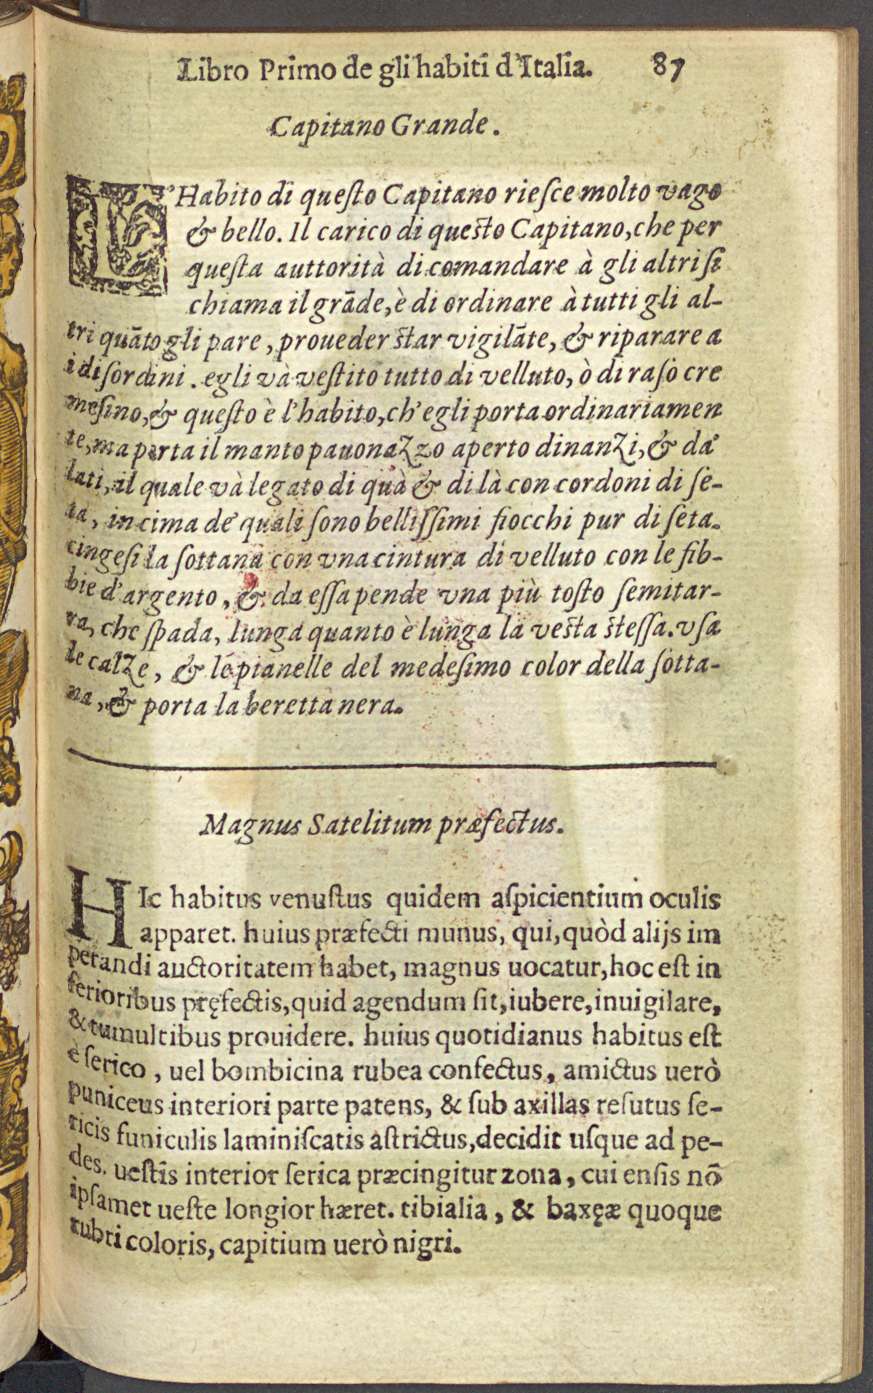 Libro Primo de gli habiti d'Italia. 87
Capitano Grande.
L'Habito di queſto Capitano rieſce molto vago
& bello. Il carico di queſto Capitano, che per
queſta auttorità di comandare à gli altri ſi
chiama il grãde, è di ordinare à tutti gli al-
tri quãto gli pare, proueder ſtar vigilãte, & riparare a
i diſordini. egli và veſtito tutto di velluto, ò di raſo cre
meſino, & queſto è l'habito, ch'egli porta ordinariamen
te, ma porta il manto pauonazzo aperto dinanzi, & da'
lati, il quale và legato di quà & di là con cordoni di ſe-
ta, in cima de' quali ſono belliſſimi fiocchi pur di ſeta.
cingeſi la ſottana con vna cintura di velluto con le fib-
bie d'argento, & da eſſa pende vna più toſto ſemitar-
ra, che ſpada, lunga quanto è lunga la veſta ſteſſa. vſa
le calze, & le pianelle del medeſimo color della ſotta-
na, & porta la beretta nera.
Magnus Satelitum præfectus.
HIc habitus venuſtus quidem aſpicientium oculis
apparet. huius præfecti munus, qui, quòd alijs im
perandi auctoritatem habet, magnus uocatur, hoc eſt in
ferioribus pręfectis, quid agendum ſit, iubere, inuigilare,
& tumultibus prouidere. huius quotidianus habitus eſt
è ſerico, uel bombicina rubea confectus, amictus uerò
puniceus interiori parte patens, & ſub axillas reſutus ſe-
ricis funiculis laminiſcatis aſtrictus, decidit uſque ad pe-
des. ueſtis interior ſerica præcingitur zona, cui enſis nõ
ipſamet ueſte longior hæret. tibialia, & baxęæ quoque
rubri coloris, capitium uerò nigri.